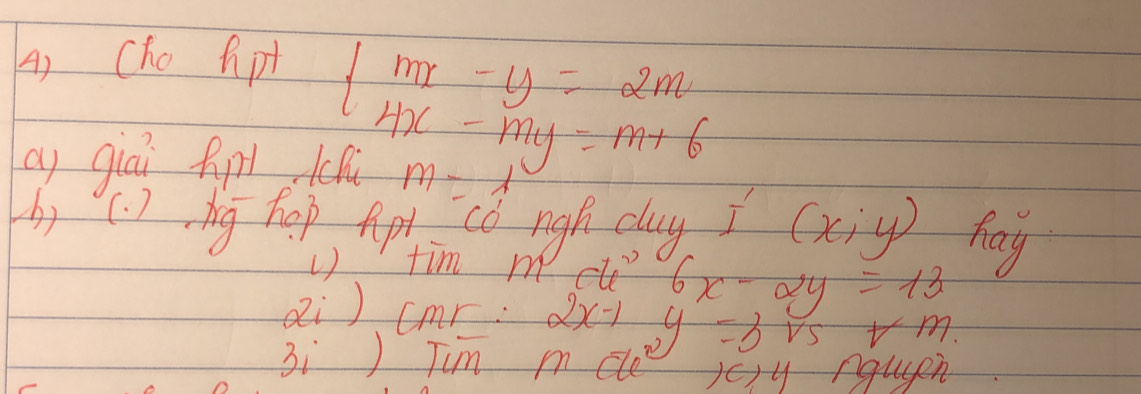 4) Cho hpt { mx - y = 2m
4x - my = m + 6
a) giải hpt khi m = 1
b) (.) trg hợp hpt có ngh duy I (x; y) hãy
1) tìm m để 6x - 2y = 13
2i) cmr: 2x + y = 3 vs ∀ m.
3i) Tìm m để x, y nguyên.